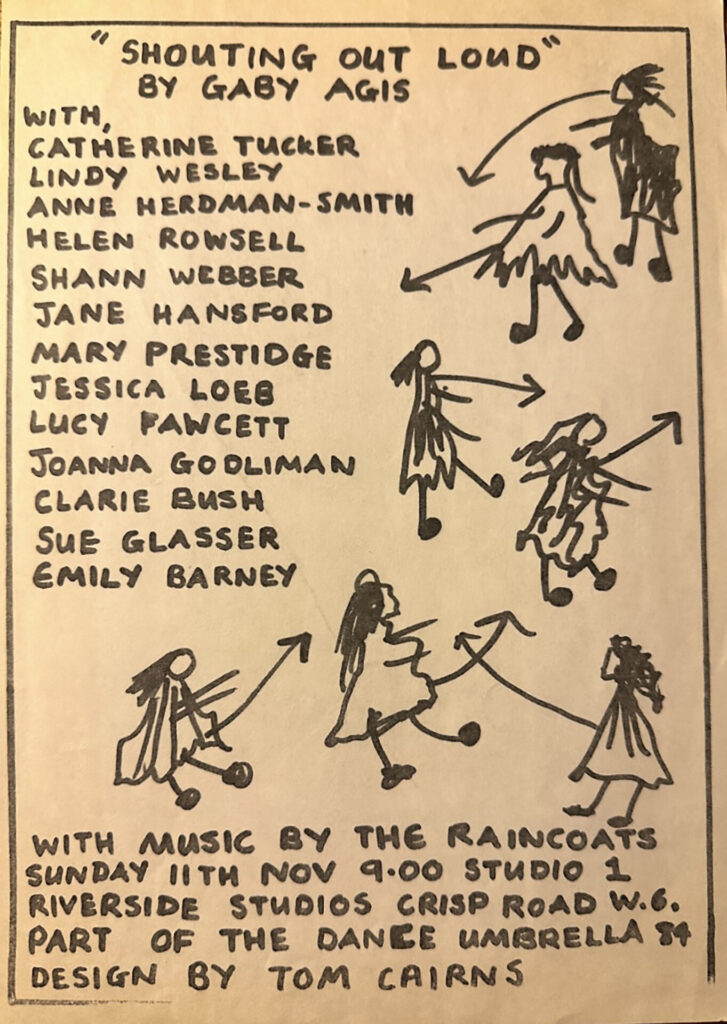 "SHOUTING OUT LOUD"
BY GABY AGIS
WITH,
CATHERINE TUCKER
LINDY WESLEY
ANNE HERDMAN-SMITH
HELEN ROWSELL
SHANN WEBBER
JANE HANSFORD
MARY PRESTIDGE
JESSICA LOEB
LUCY FAWCETT
JOANNA GODLIMAN
CLARIE BUSH
SUE GLASSER
EMILY BARNEY
WITH MUSIC BY THE RAINCOATS
SUNDAY 11TH NOV 9.00 STUDIO 1
RIVERSIDE STUDIOS CRISP ROAD W.6.
PART OF THE DANCE UMBRELLA 84
DESIGN BY TOM CAIRNS